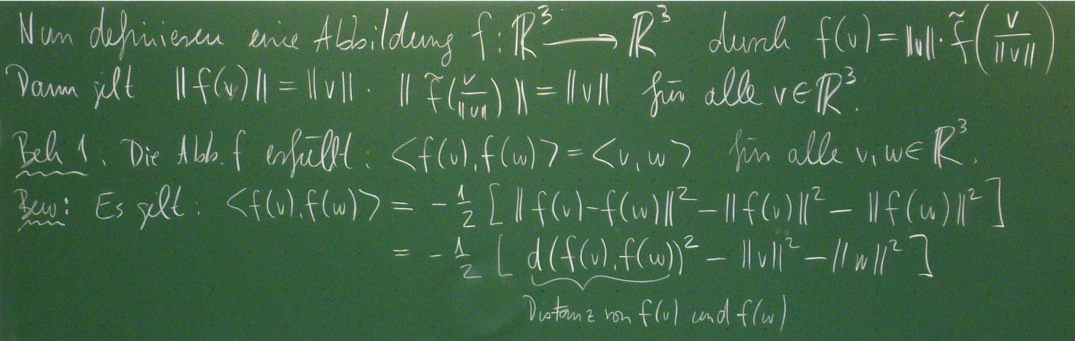 Nun definieren eine Abbildung f: ℝ³ ⟶ ℝ³ durch f(v) = ||v|| · f̃(v/||v||)
Dann gilt ||f(v)|| = ||v|| · || f̃(v/||v||) || = ||v|| für alle v ∈ ℝ³.
Beh 1. Die Abb. f erfüllt: <f(v), f(w)> = <v, w> für alle v, w ∈ ℝ³.
Bew: Es gilt: <f(v), f(w)> = -1/2 [ ||f(v) - f(w)||² - ||f(v)||² - ||f(w)||² ]
= -1/2 [ d(f(v), f(w))² - ||v||² - ||w||² ]
Distanz von f(v) und f(w)